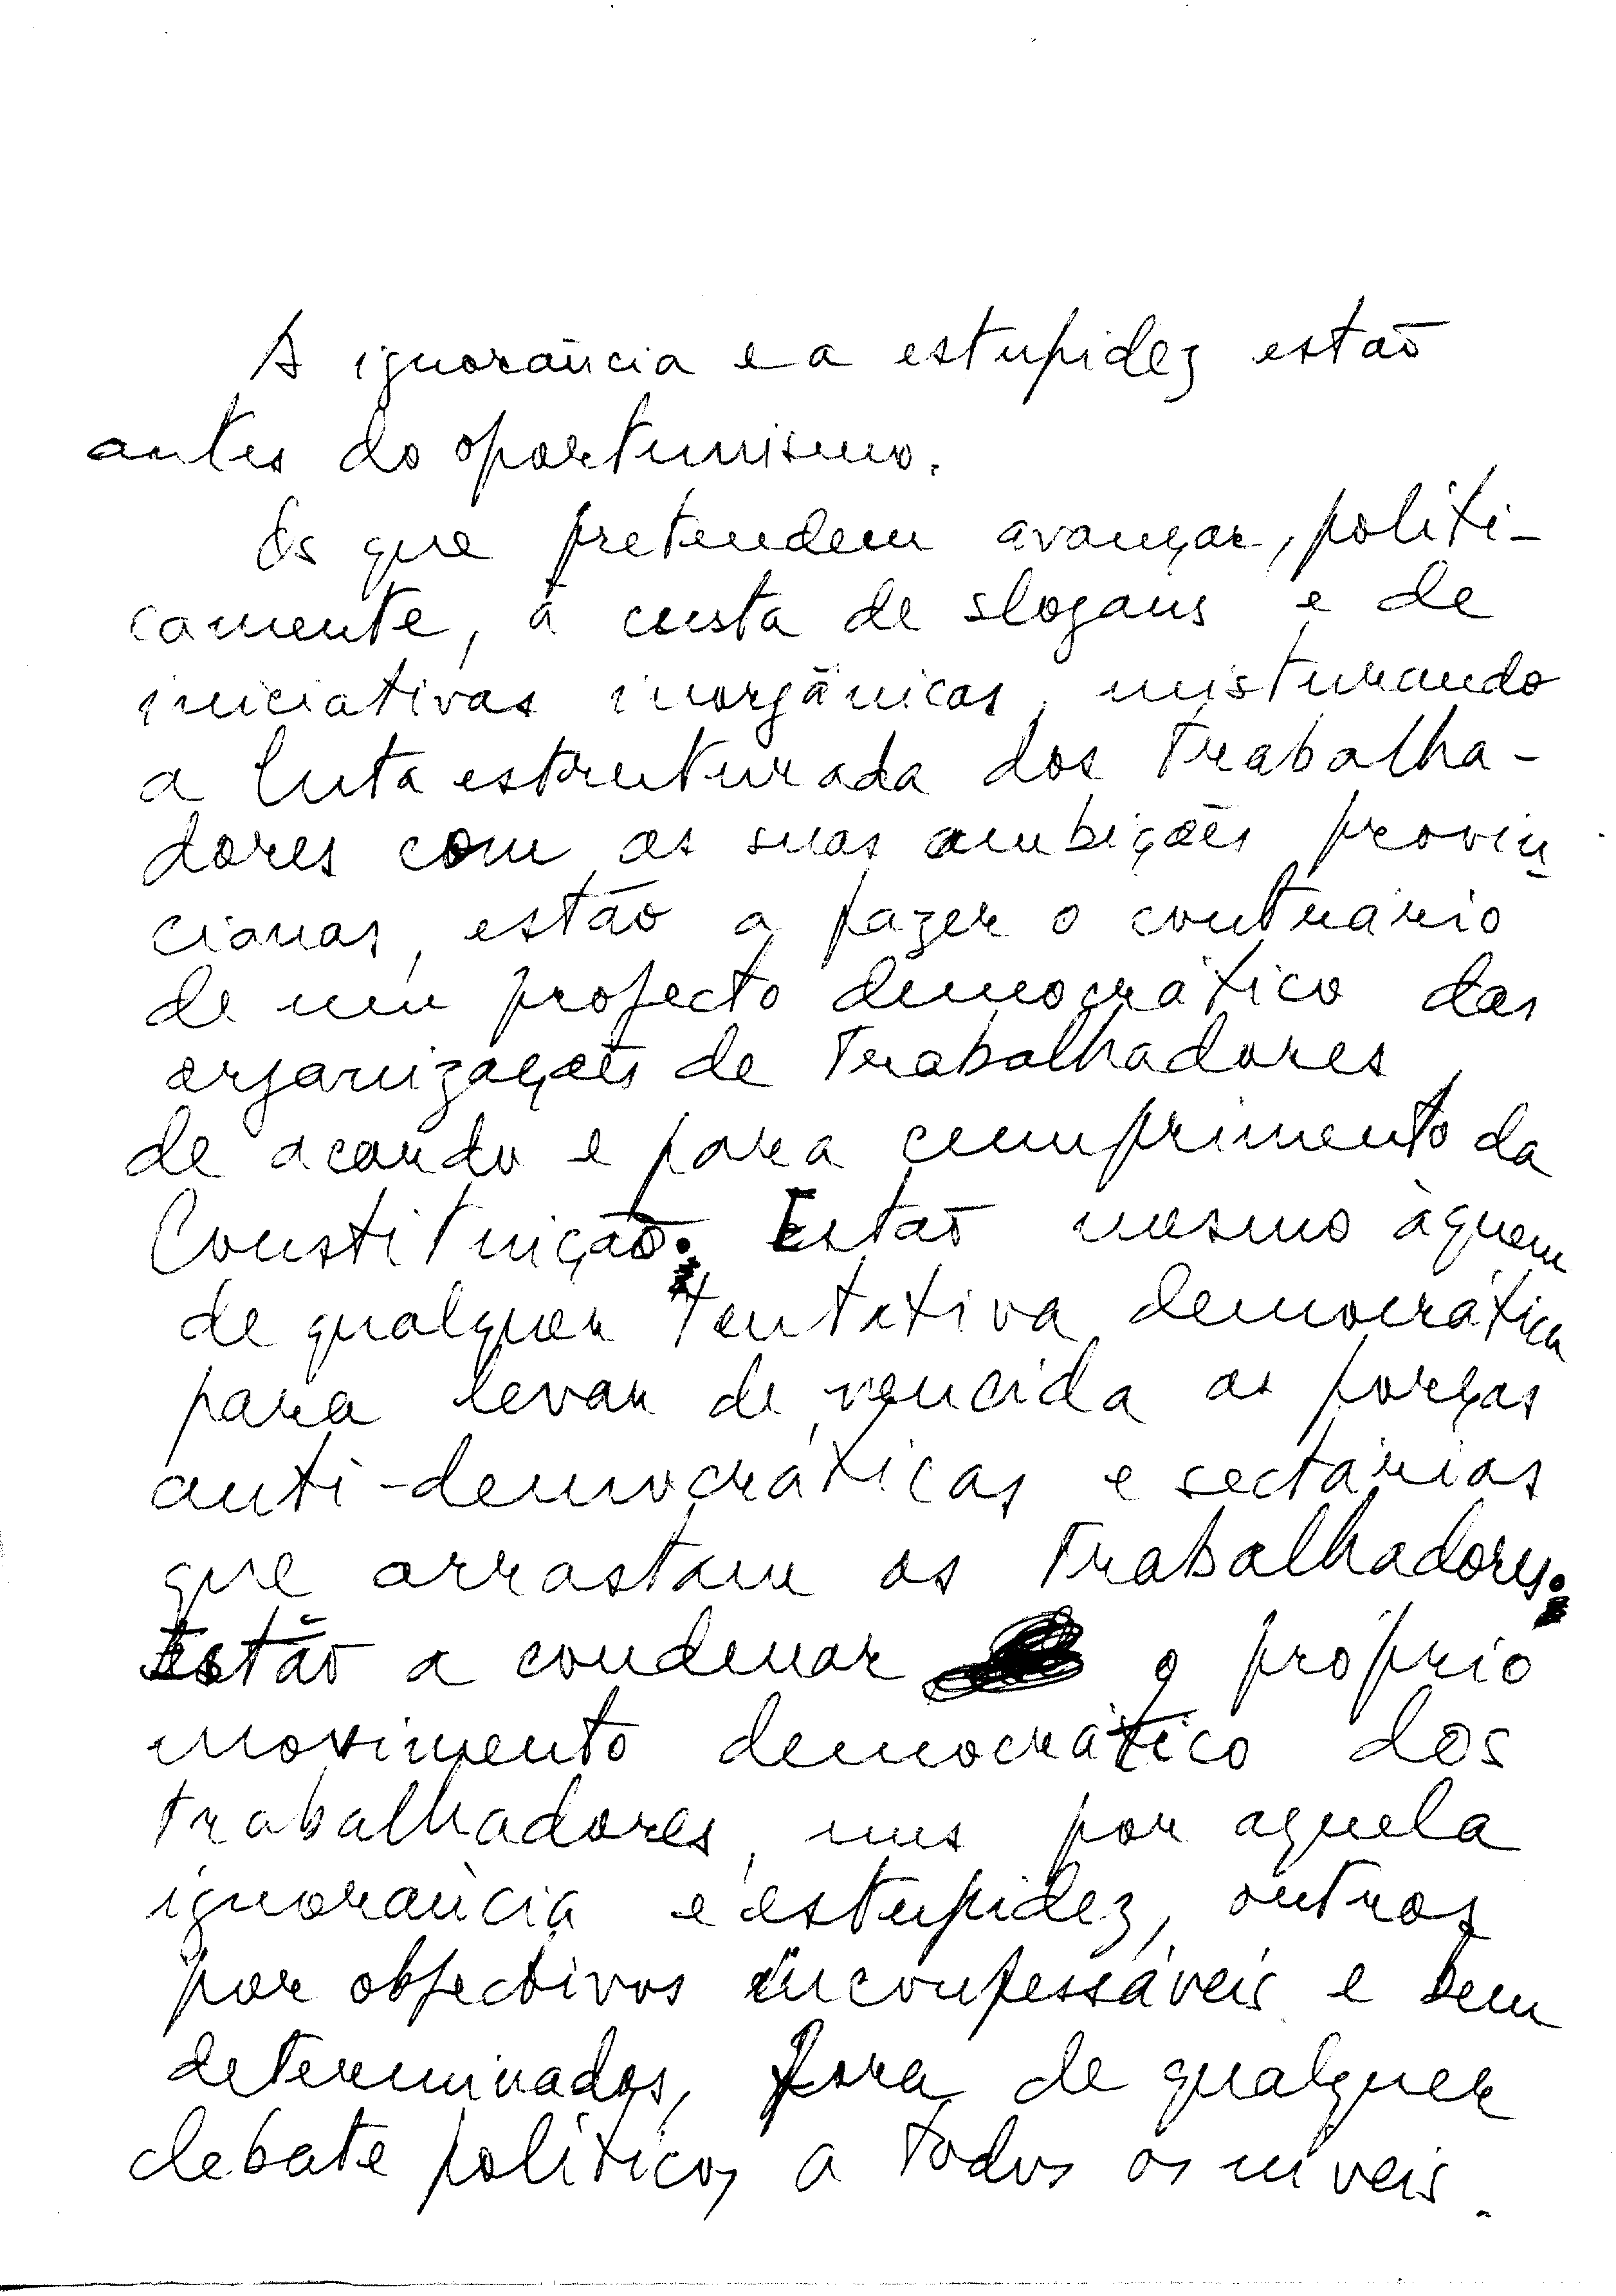 A ignorância e a estupidez estão
antes do oportunismo.
Os que pretendem avançar, politi-
camente, à custa de slogans e de
iniciativas inorgânicas, misturando
a luta estruturada dos Trabalha-
dores com as suas ambições provin-
cianas, estão a fazer o contrário
de um projecto democrático das
organizações de Trabalhadores,
de acordo e para cumprimento da
Constituição. Estão mesmo àquem
de qualquer tentativa democrática
para levar de vencida as forças
anti-democráticas e sectárias
que arrastam os Trabalhadores.
Estão a condenar o próprio
movimento democrático dos
trabalhadores, uns por aquela
ignorância e estupidez, outros
por objectivos inconfessáveis e bem
determinados, fora de qualquer
debate político, a todos os níveis.